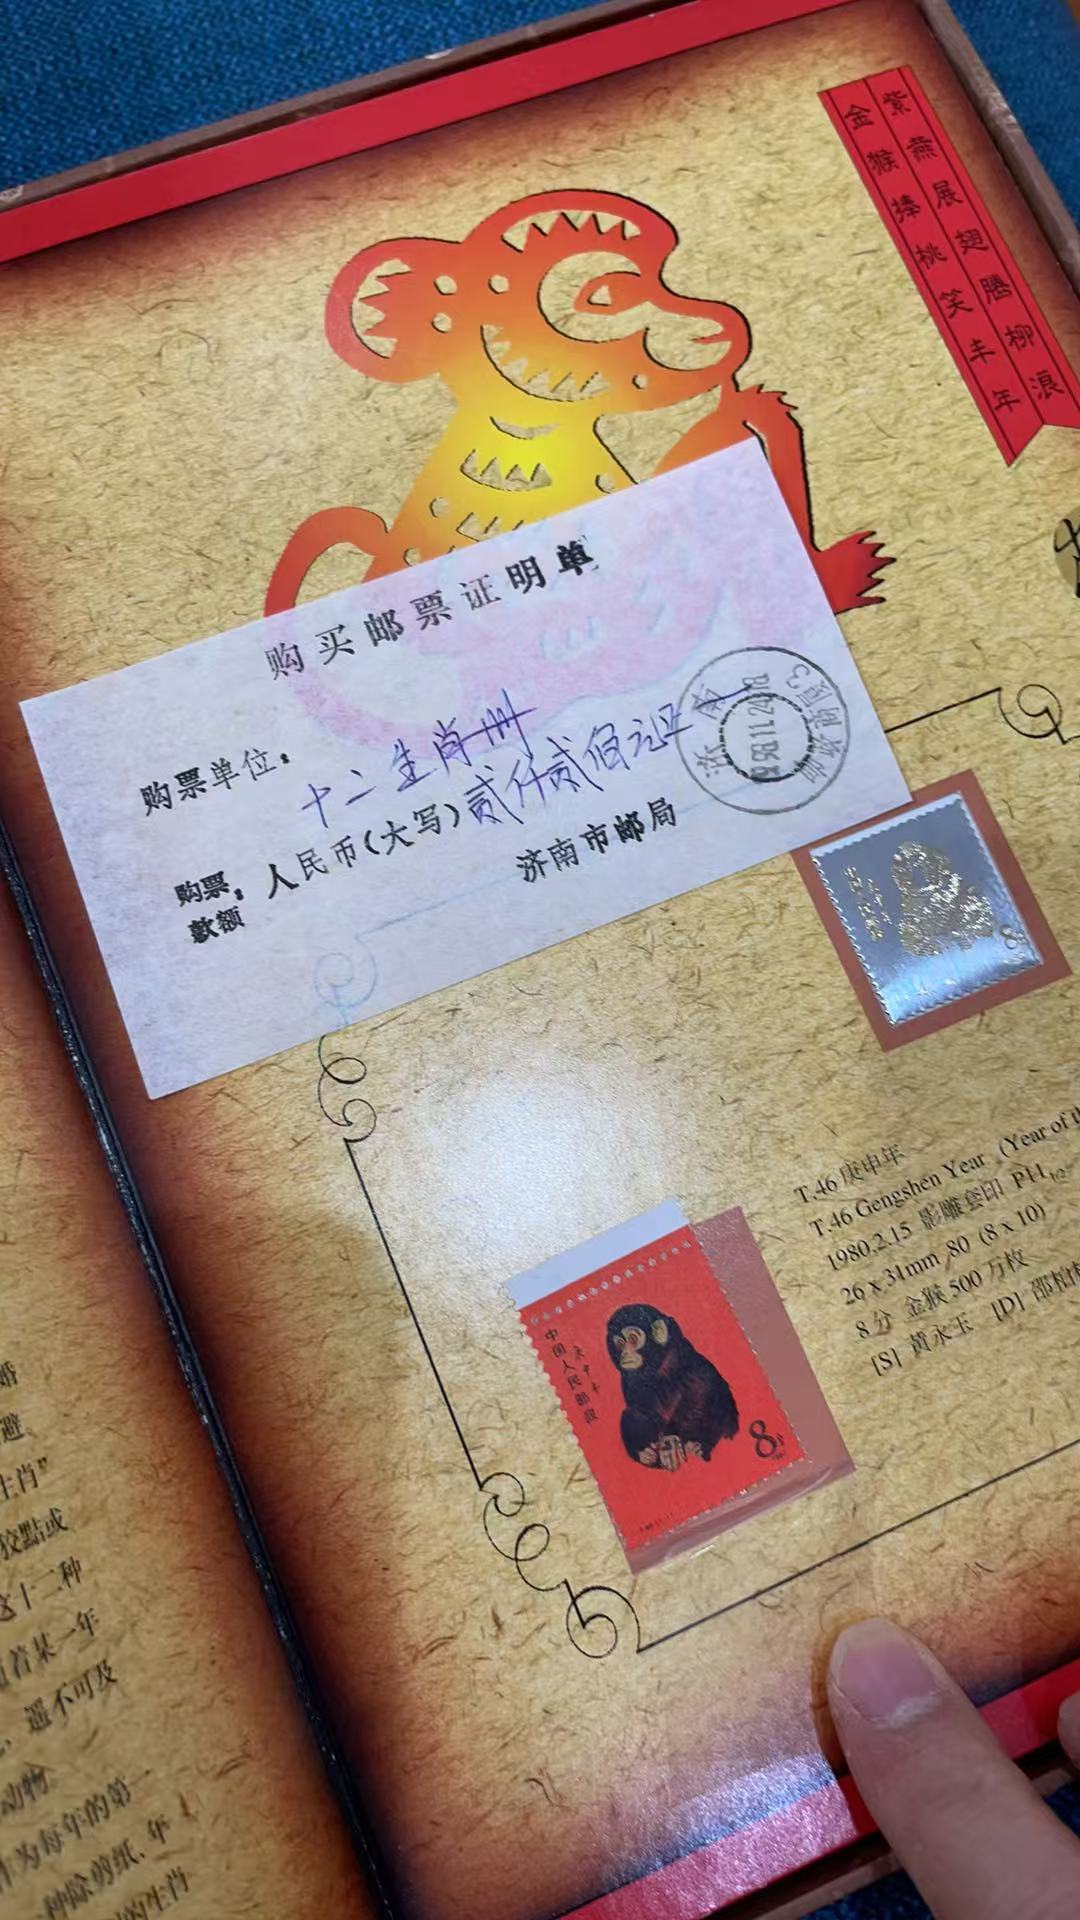 紫燕展翅腾柳浪
金猴捧桃笑丰年
购买邮票证明单
购票单位：
十二生肖册
购票
款额：人民币（大写）贰仟贰佰元正
济南市邮局
济南
1998.11.24.18
8
T.46 庚申年
T.46 Gengshen Year (Year of
1980.2.15 影雕套印 P11 1/2
26 x 31mm 80 (8 x 10)
8分 金猴 500万枚
[S] 黄永玉 [D] 邵柏林
中国人民邮政
庚申年
8分
1980
避
生肖”
狡黠或
这十二种
着某一年
遥不可及
动物
作为每年的第一
种除剪纸、年
的生肖